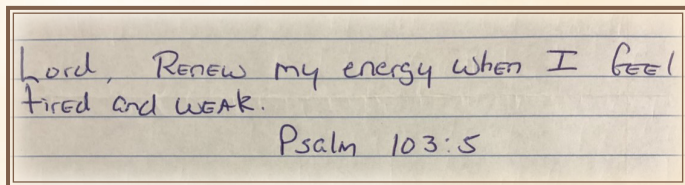 Lord, Renew my energy when I feel
tired and weak.
Psalm 103:5